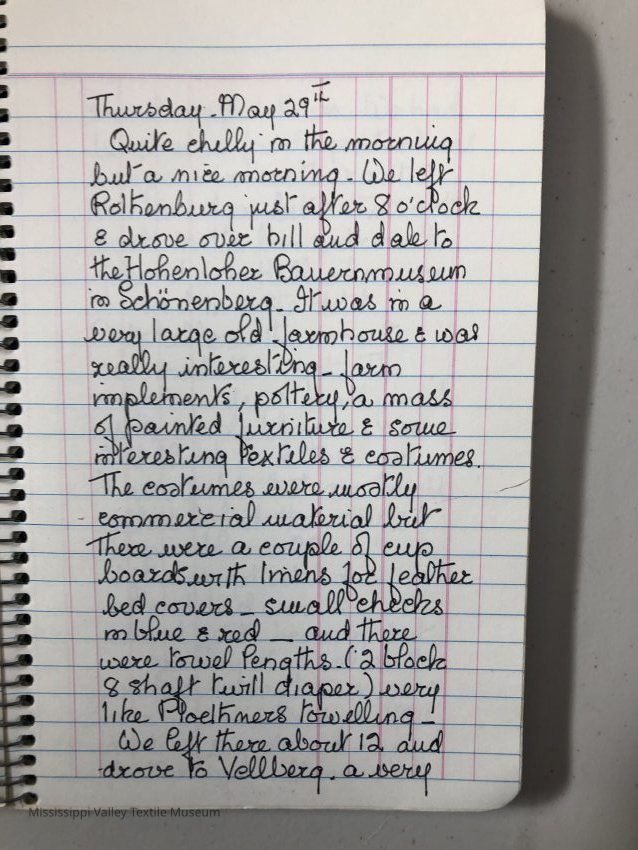 Thursday. May 29th
Quite chilly in the morning
but a nice morning. We left
Rothenburg just after 8 o'clock
& drove over hill and dale to
the Hohenloher Bauernmuseum
in Schönenberg. It was in a
very large old farmhouse & was
really interesting - farm
implements, pottery, a mass
of painted furniture & some
interesting textiles & costumes.
The costumes were mostly
commercial material but
There were a couple of cup
boards with linens for feather
bed covers - small checks
in blue & red - and there
were towel lengths. (2 block
8 shaft twill diaper) very
like Ploethners towelling -
We left there about 12 and
drove to Vellberg. a very
Mississippi Valley Textile Museum